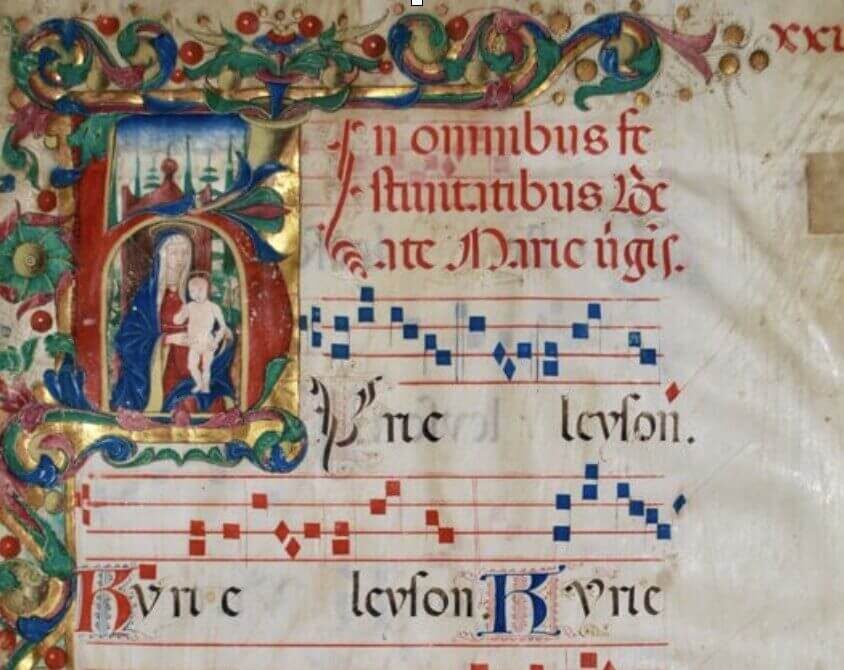 In omnibus fe
stiuitatibus be
ate Marie uigis.
KYrie leyson.
Kyrie leyson. Kyrie